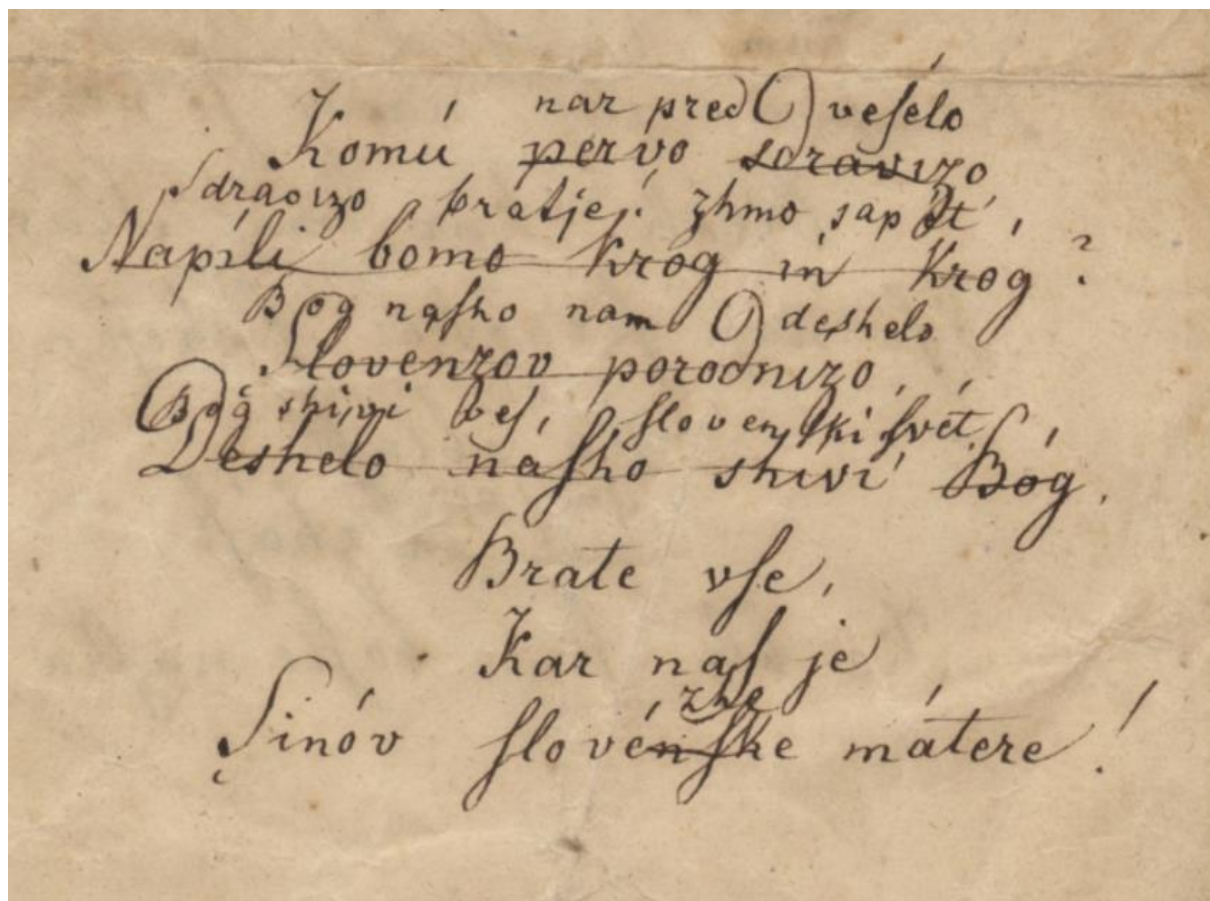 nar pred veſélo
Komú pervo sdravizo
Sdravizo bratje! zhmo sapét',
Napíli bomo krog in krog?
Bog naſho nam deshelo
Slovénzov porodnizo,
Bog shivi veſ, ſlovenſki ſvét,
Deshelo náſho shiví Bóg.
Brate vſe,
Kar naſ je
zhe
Sinóv ſlovénſke mátere!